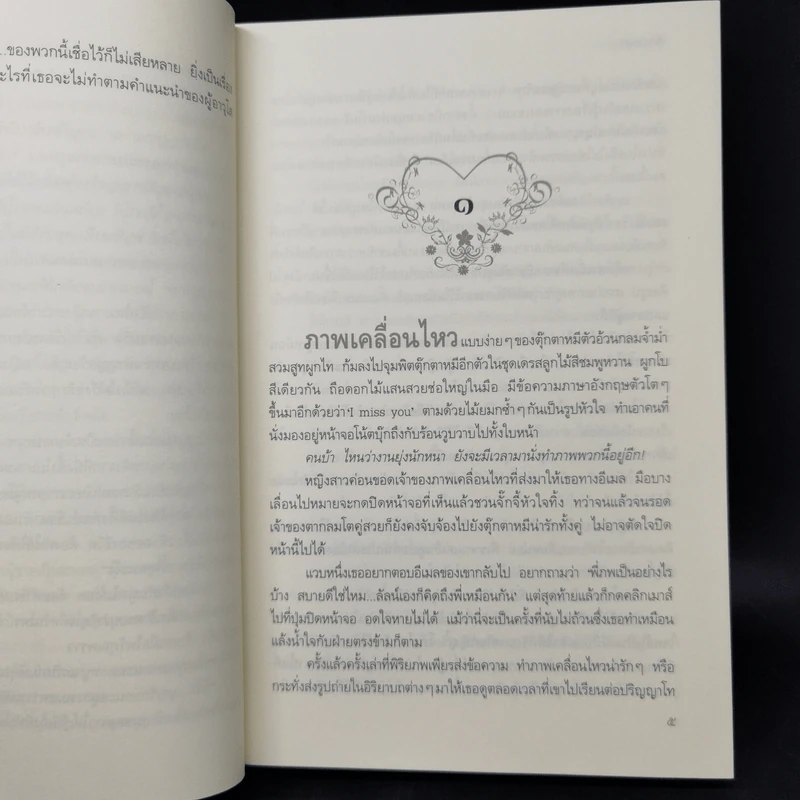 ...ของพวกนี้เชื่อไว้ก็ไม่เสียหลาย ยิ่งเป็นเรื่อง
ะไรที่เธอจะไม่ทำตามคำแนะนำของผู้อาวุโส
๑
ภาพเคลื่อนไหวแบบง่ายๆ ของตุ๊กตาหมีตัวอ้วนกลมจ้ำม่ำ
สวมสูทผูกไท ก้มลงไปจุมพิตตุ๊กตาหมีอีกตัวในชุดเดรสลูกไม้สีชมพูหวาน ผูกโบ
สีเดียวกัน ถือดอกไม้แสนสวยช่อใหญ่ในมือ มีข้อความภาษาอังกฤษตัวโตๆ
ขึ้นมาอีกด้วยว่า 'I miss you' ตามด้วยไม้ยมกซ้ำๆ กันเป็นรูปหัวใจ ทำเอาคนที่
นั่งมองอยู่หน้าจอโน้ตบุ๊กถึงกับร้อนวูบวาบไปทั้งใบหน้า
คนบ้า ไหนว่างานยุ่งนักหนา ยังจะมีเวลามานั่งทำภาพพวกนี้อยู่อีก!
หญิงสาวค่อนขอดเจ้าของภาพเคลื่อนไหวที่ส่งมาให้เธอทางอีเมล มือบาง
เลื่อนไปหมายจะกดปิดหน้าจอที่เห็นแล้วชวนจั๊กจี้หัวใจทิ้ง ทว่าจนแล้วจนรอด
เจ้าของตากลมโตคู่สวยก็ยังคงจับจ้องไปยังตุ๊กตาหมีน่ารักทั้งคู่ ไม่อาจตัดใจปิด
หน้านี้ไปได้
แวบหนึ่งเธออยากตอบอีเมลของเขากลับไป อยากถามว่า 'พี่ภพเป็นอย่างไร
บ้าง สบายดีใช่ไหม...ลัลน์เองก็คิดถึงพี่เหมือนกัน' แต่สุดท้ายแล้วก็กดคลิกเมาส์
ไปที่ปุ่มปิดหน้าจอ อดใจหายไม่ได้ แม้ว่านี่จะเป็นครั้งที่นับไม่ถ้วนซึ่งเธอทำเหมือน
แล้งน้ำใจกับฝ่ายตรงข้ามก็ตาม
ครั้งแล้วครั้งเล่าที่พิริยภพเพียรส่งข้อความ ทำภาพเคลื่อนไหวน่ารักๆ หรือ
กระทั่งส่งรูปถ่ายในอิริยาบถต่างๆ มาให้เธอดูตลอดเวลาที่เขาไปเรียนต่อปริญญาโท
๕